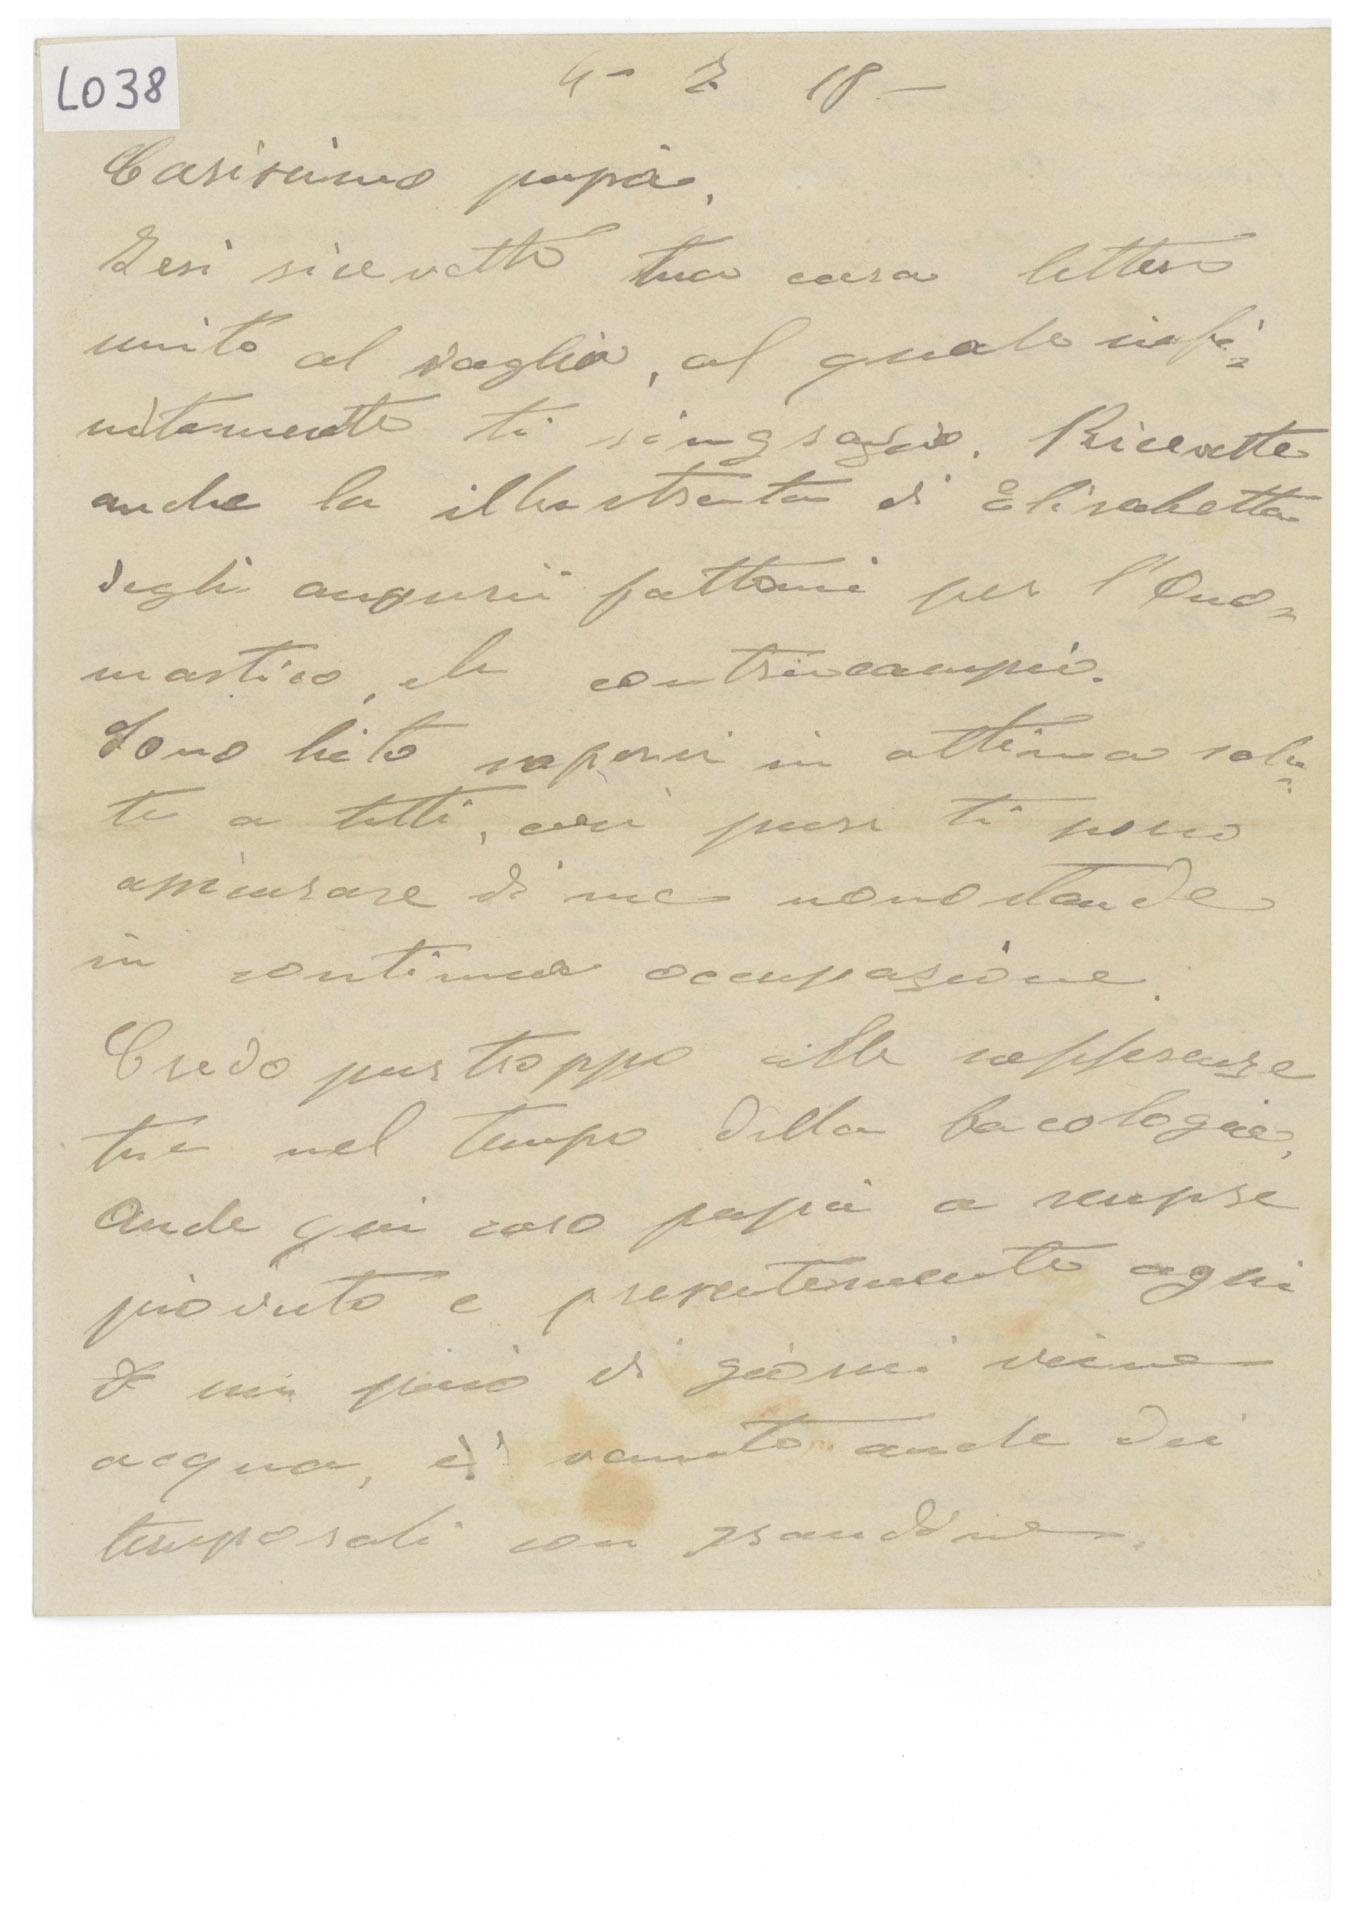 L038
4 - 7 18 -
Carissimo papà,
Ieri ricevetti tua cara lettera
unito al vaglia, al quale infi=
nitamente ti ringrazio. Ricevetti
anche la illustrata di Elisabetta
degli augurii fattomi per l'Ono=
mastico, che contraccampio.
Sono lieto sapervi in attima salu=
te a tutti, così pure ti posso
assicurare di me nonostande
in continua occupazione.
Credo purtroppo alle sofferenze
tue nel tempo della bacologia,
Anche qui caro papà a sempre
piovuto e presentemente ogni
un paio di giorni viene
acqua, è venuto anche dei
temporali con grandine.